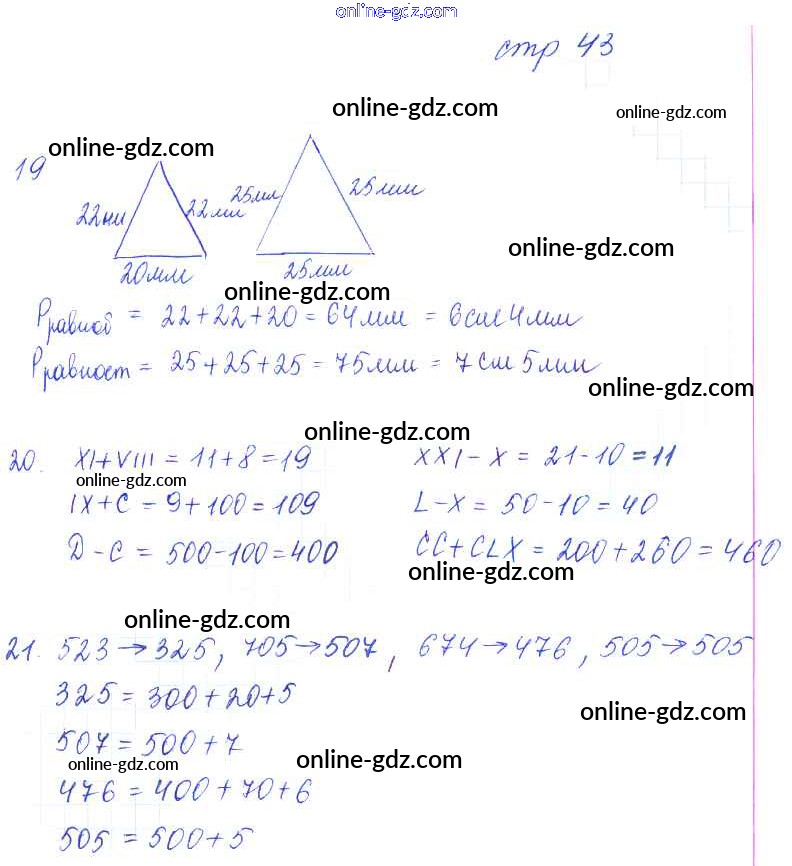 online-gdz.com
стр 43
online-gdz.com
online-gdz.com
online-gdz.com
19
22мм
22мм
25мм
25мм
online-gdz.com
20мм
25мм
online-gdz.com
Pравноб = 22+22+20 = 64мм = 6см 4мм
Pравност = 25+25+25 = 75мм = 7см 5мм
online-gdz.com
online-gdz.com
20. XI+VIII = 11+8=19 XXI-X = 21-10=11
online-gdz.com
IX+C = 9+100=109 L-X = 50-10=40
D-C = 500-100=400 CC+CLX = 200+260=460
online-gdz.com
online-gdz.com
21. 523→325, 705→507, 674→476, 505→505
325 = 300+20+5
online-gdz.com
507 = 500+7
online-gdz.com
online-gdz.com
476 = 400+70+6
505 = 500+5
online-gdz.com